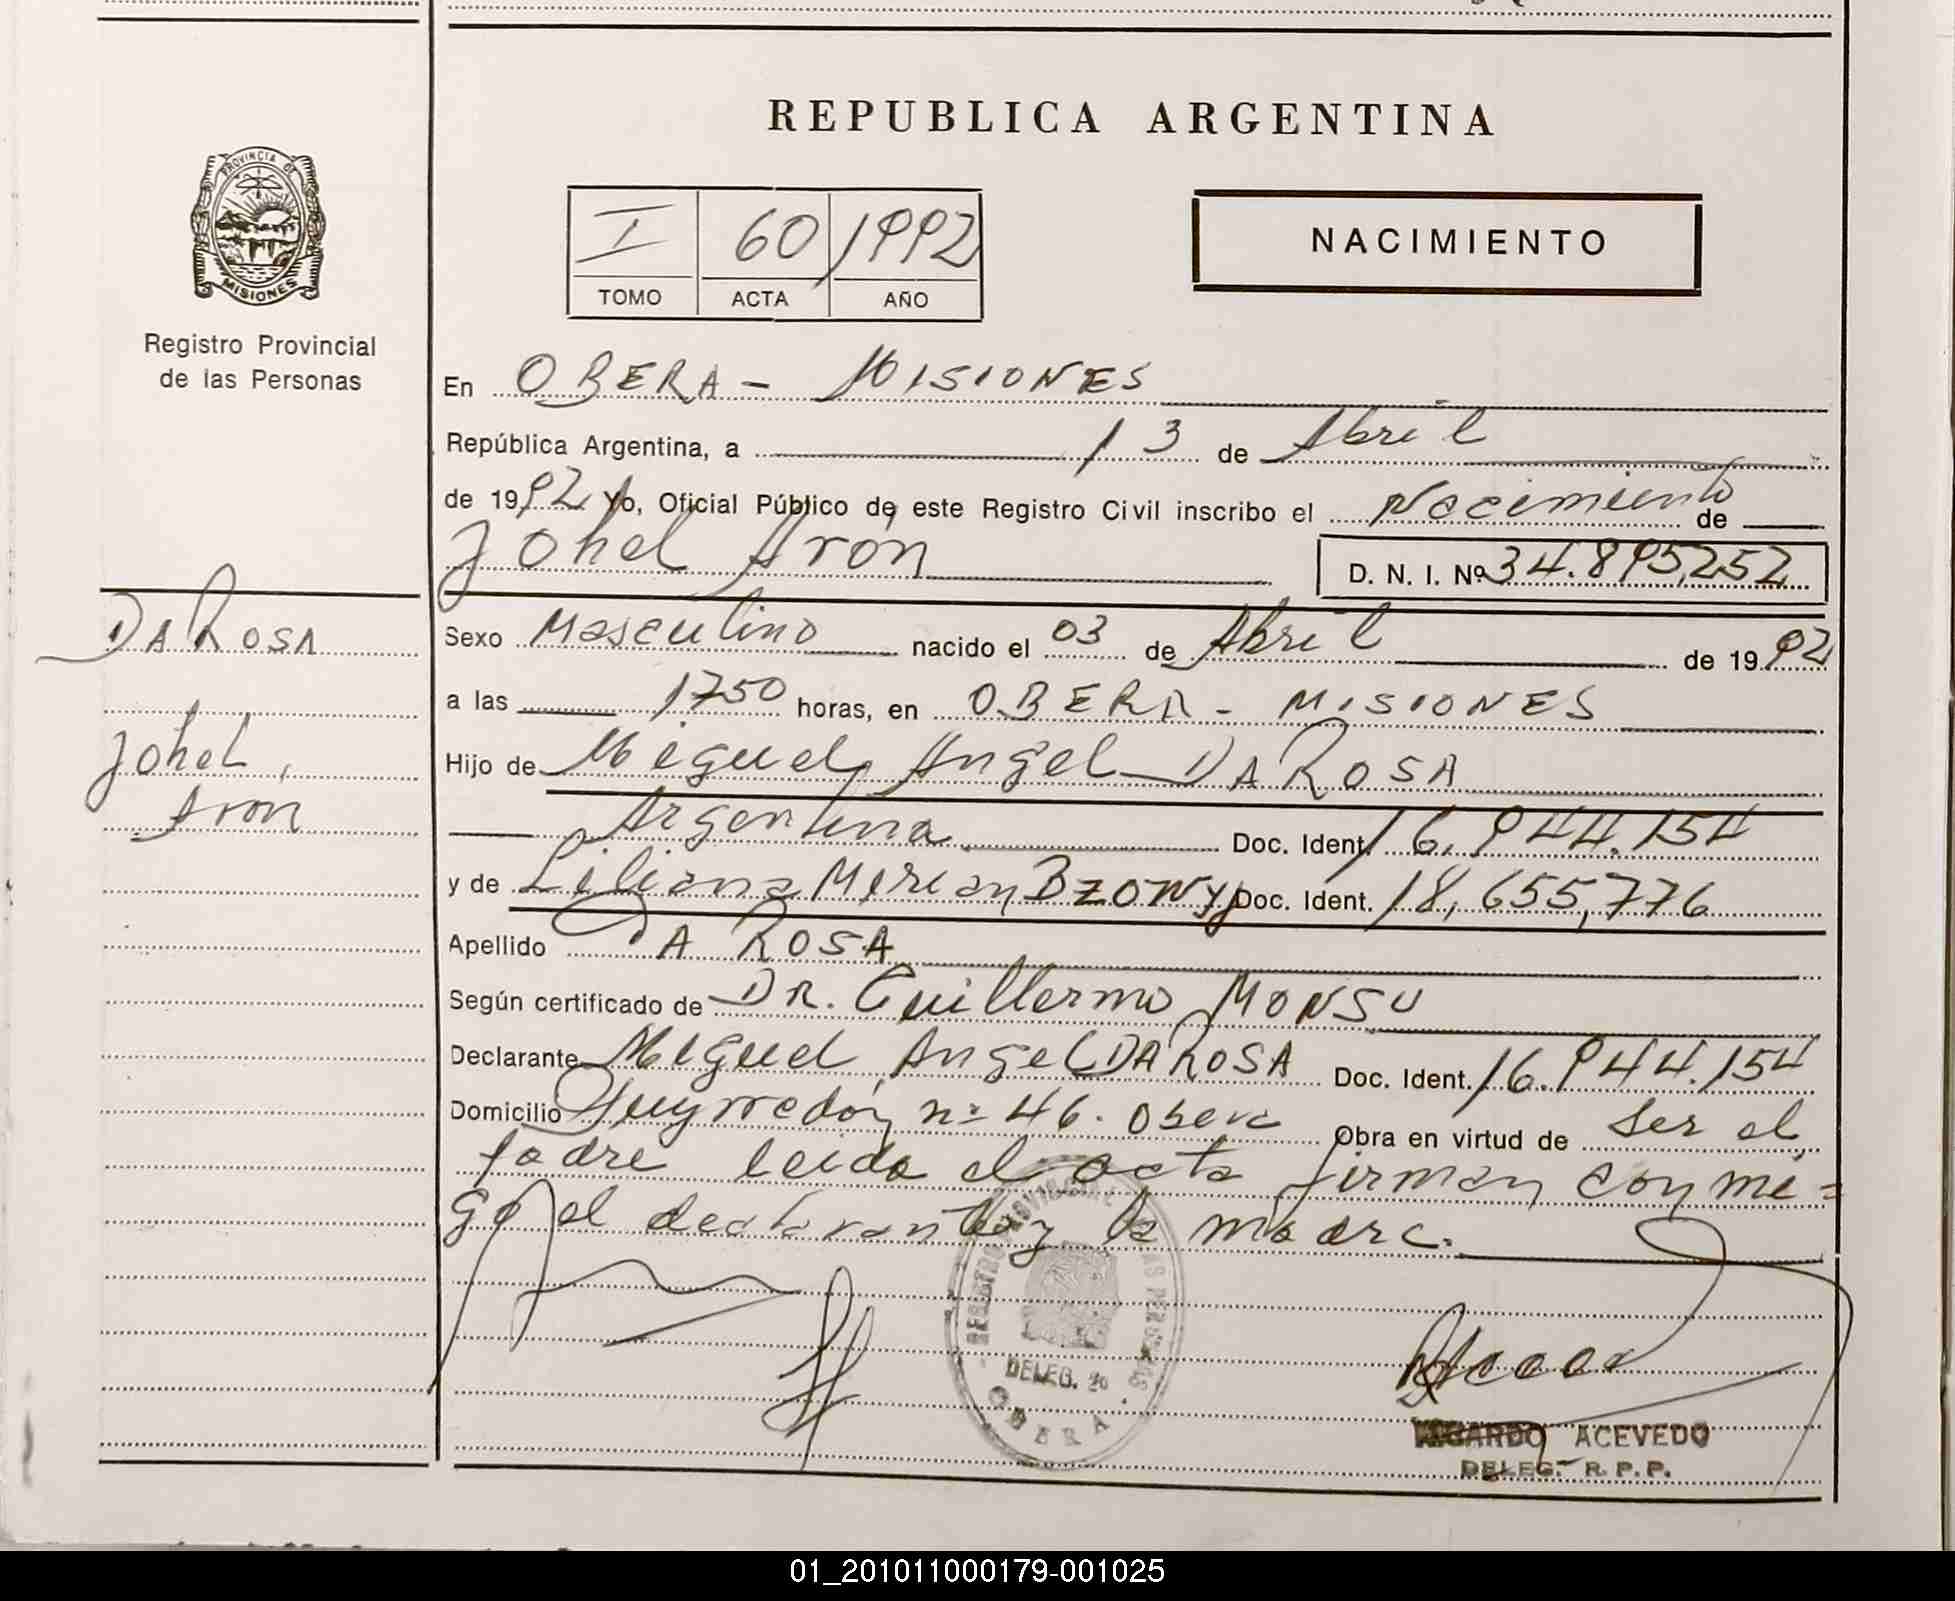 REPUBLICA ARGENTINA
PROVINCIA DE
MISIONES
Registro Provincial
de las Personas
I 60 1992
TOMO ACTA AÑO
NACIMIENTO
En OBERA - MISIONES
República Argentina, a 13 de Abril
de 1992 Yo, Oficial Público de este Registro Civil inscribo el Nacimiento de
Johel Arón D. N. I. Nº 34.895.252
DA ROSA
Johel
Aron
Sexo Masculino nacido el 03 de Abril de 1992
a las 1750 horas, en OBERA - MISIONES
Hijo de Miguel Angel DA ROSA
Argentina Doc. Ident. 16.944.154
y de Liliana Merian BZOWYJ Doc. Ident. 18,655,776
Apellido DA ROSA
Según certificado de DR. Guillermo MONSU
Declarante Miguel Angel DA ROSA Doc. Ident. 16.944.154
Domicilio Pueyrredón nº 46. Obera Obra en virtud de ser el
padre leida el acta firman con mi=
go el declarante y la madre.
REGISTRO PROVINCIAL DE LAS PERSONAS
DELEG.
OBERA
RICARDO ACEVEDO
DELEG. R. P. P.
01_201011000179-001025